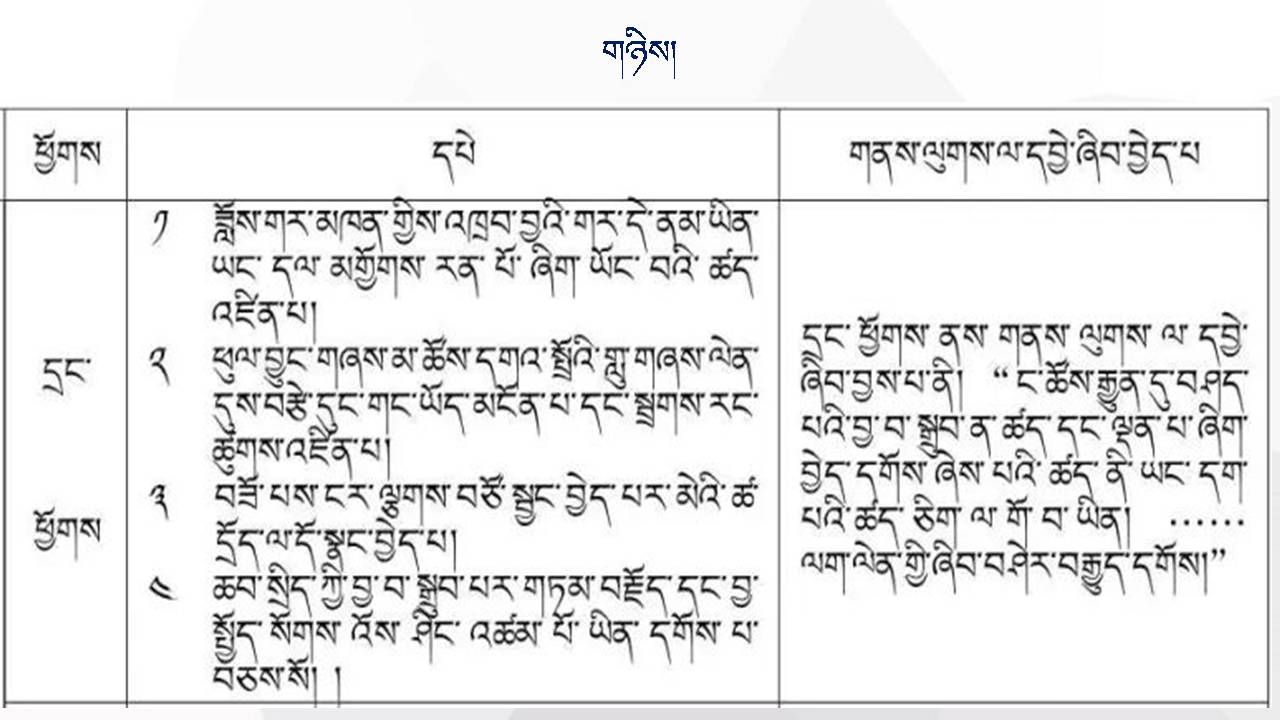 གཉིས།
ཕྱོགས
དཔེ
གནས་ལུགས་ལ་དབྱེ་ཞིབ་བྱེད་པ
དྲང་
ཕྱོགས
༡ ཟློས་གར་མཁན་གྱིས་འཁྲབ་བྱའི་གར་དེ་ནམ་ཡིན་
ཡང་ དལ་ མགྱོགས་ རན་ པོ་ ཞིག་ ཡོང་ བའི་ ཚད་
འཛིན་པ།
༢ ཕུལ་བྱུང་གཞས་མ་ཚོས་དགའ་སྤྲོའི་གླུ་གཞས་ལེན་
དུས་བརྩེ་དུང་གང་ཡོད་མངོན་པ་དང་སྦྲགས་རང་
ཚུགས་འཛིན་པ།
༣ བཟོ་པས་ངར་ལྕགས་བཙོ་སྦྱང་བྱེད་པར་མེའི་ཚ་
དྲོད་ལ་དོ་སྣང་བྱེད་པ།
༤ ཆབ་སྲིད་ཀྱི་བྱ་བ་སྒྲུབ་པར་གཏམ་བརྗོད་དང་བྱ་
སྤྱོད་སོགས་འོས་ཤིང་འཚམ་པོ་ཡིན་དགོས་པ་
བཅས་སོ། །
དྲང་ ཕྱོགས་ ནས་ གནས་ ལུགས་ ལ་ དབྱེ་
ཞིབ་བྱས་པ་ནི། “ང་ཚོས་རྒྱུན་དུ་བཤད་
པའི་བྱ་བ་སྒྲུབ་ན་ཚད་དང་ལྡན་པ་ཞིག་
བྱེད་དགོས་ཞེས་པའི་ཚད་ནི་ཡང་དག་
པའི་ཚད་ཅིག་ལ་གོ་བ་ཡིན། ······
ལག་ལེན་གྱི་ཞིབ་བཤེར་བརྒྱུད་དགོས།”